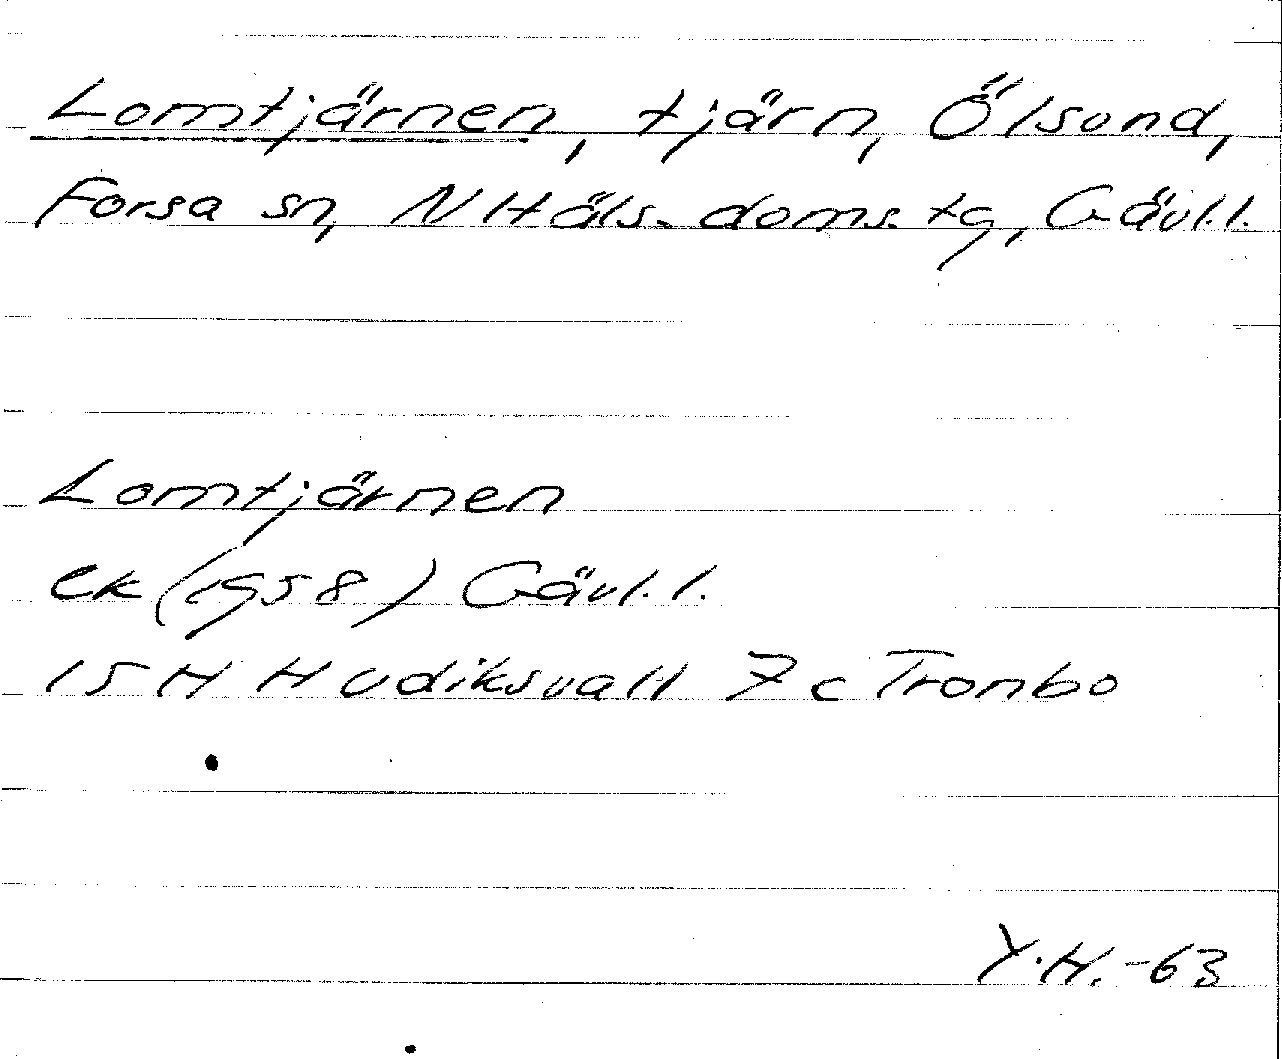 Lomtjärnen, tjärn, Ölsund,
Forsa sn, N Häls. doms. tg, Gävl.l.
Lomtjärnen
ek (1958) Gävl.l.
15 H Hudiksvall 7 c Trombo
Y.H.-63